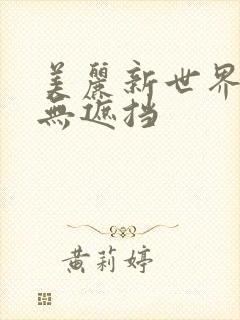 美麗新世界
無遮挡
黄莉婷